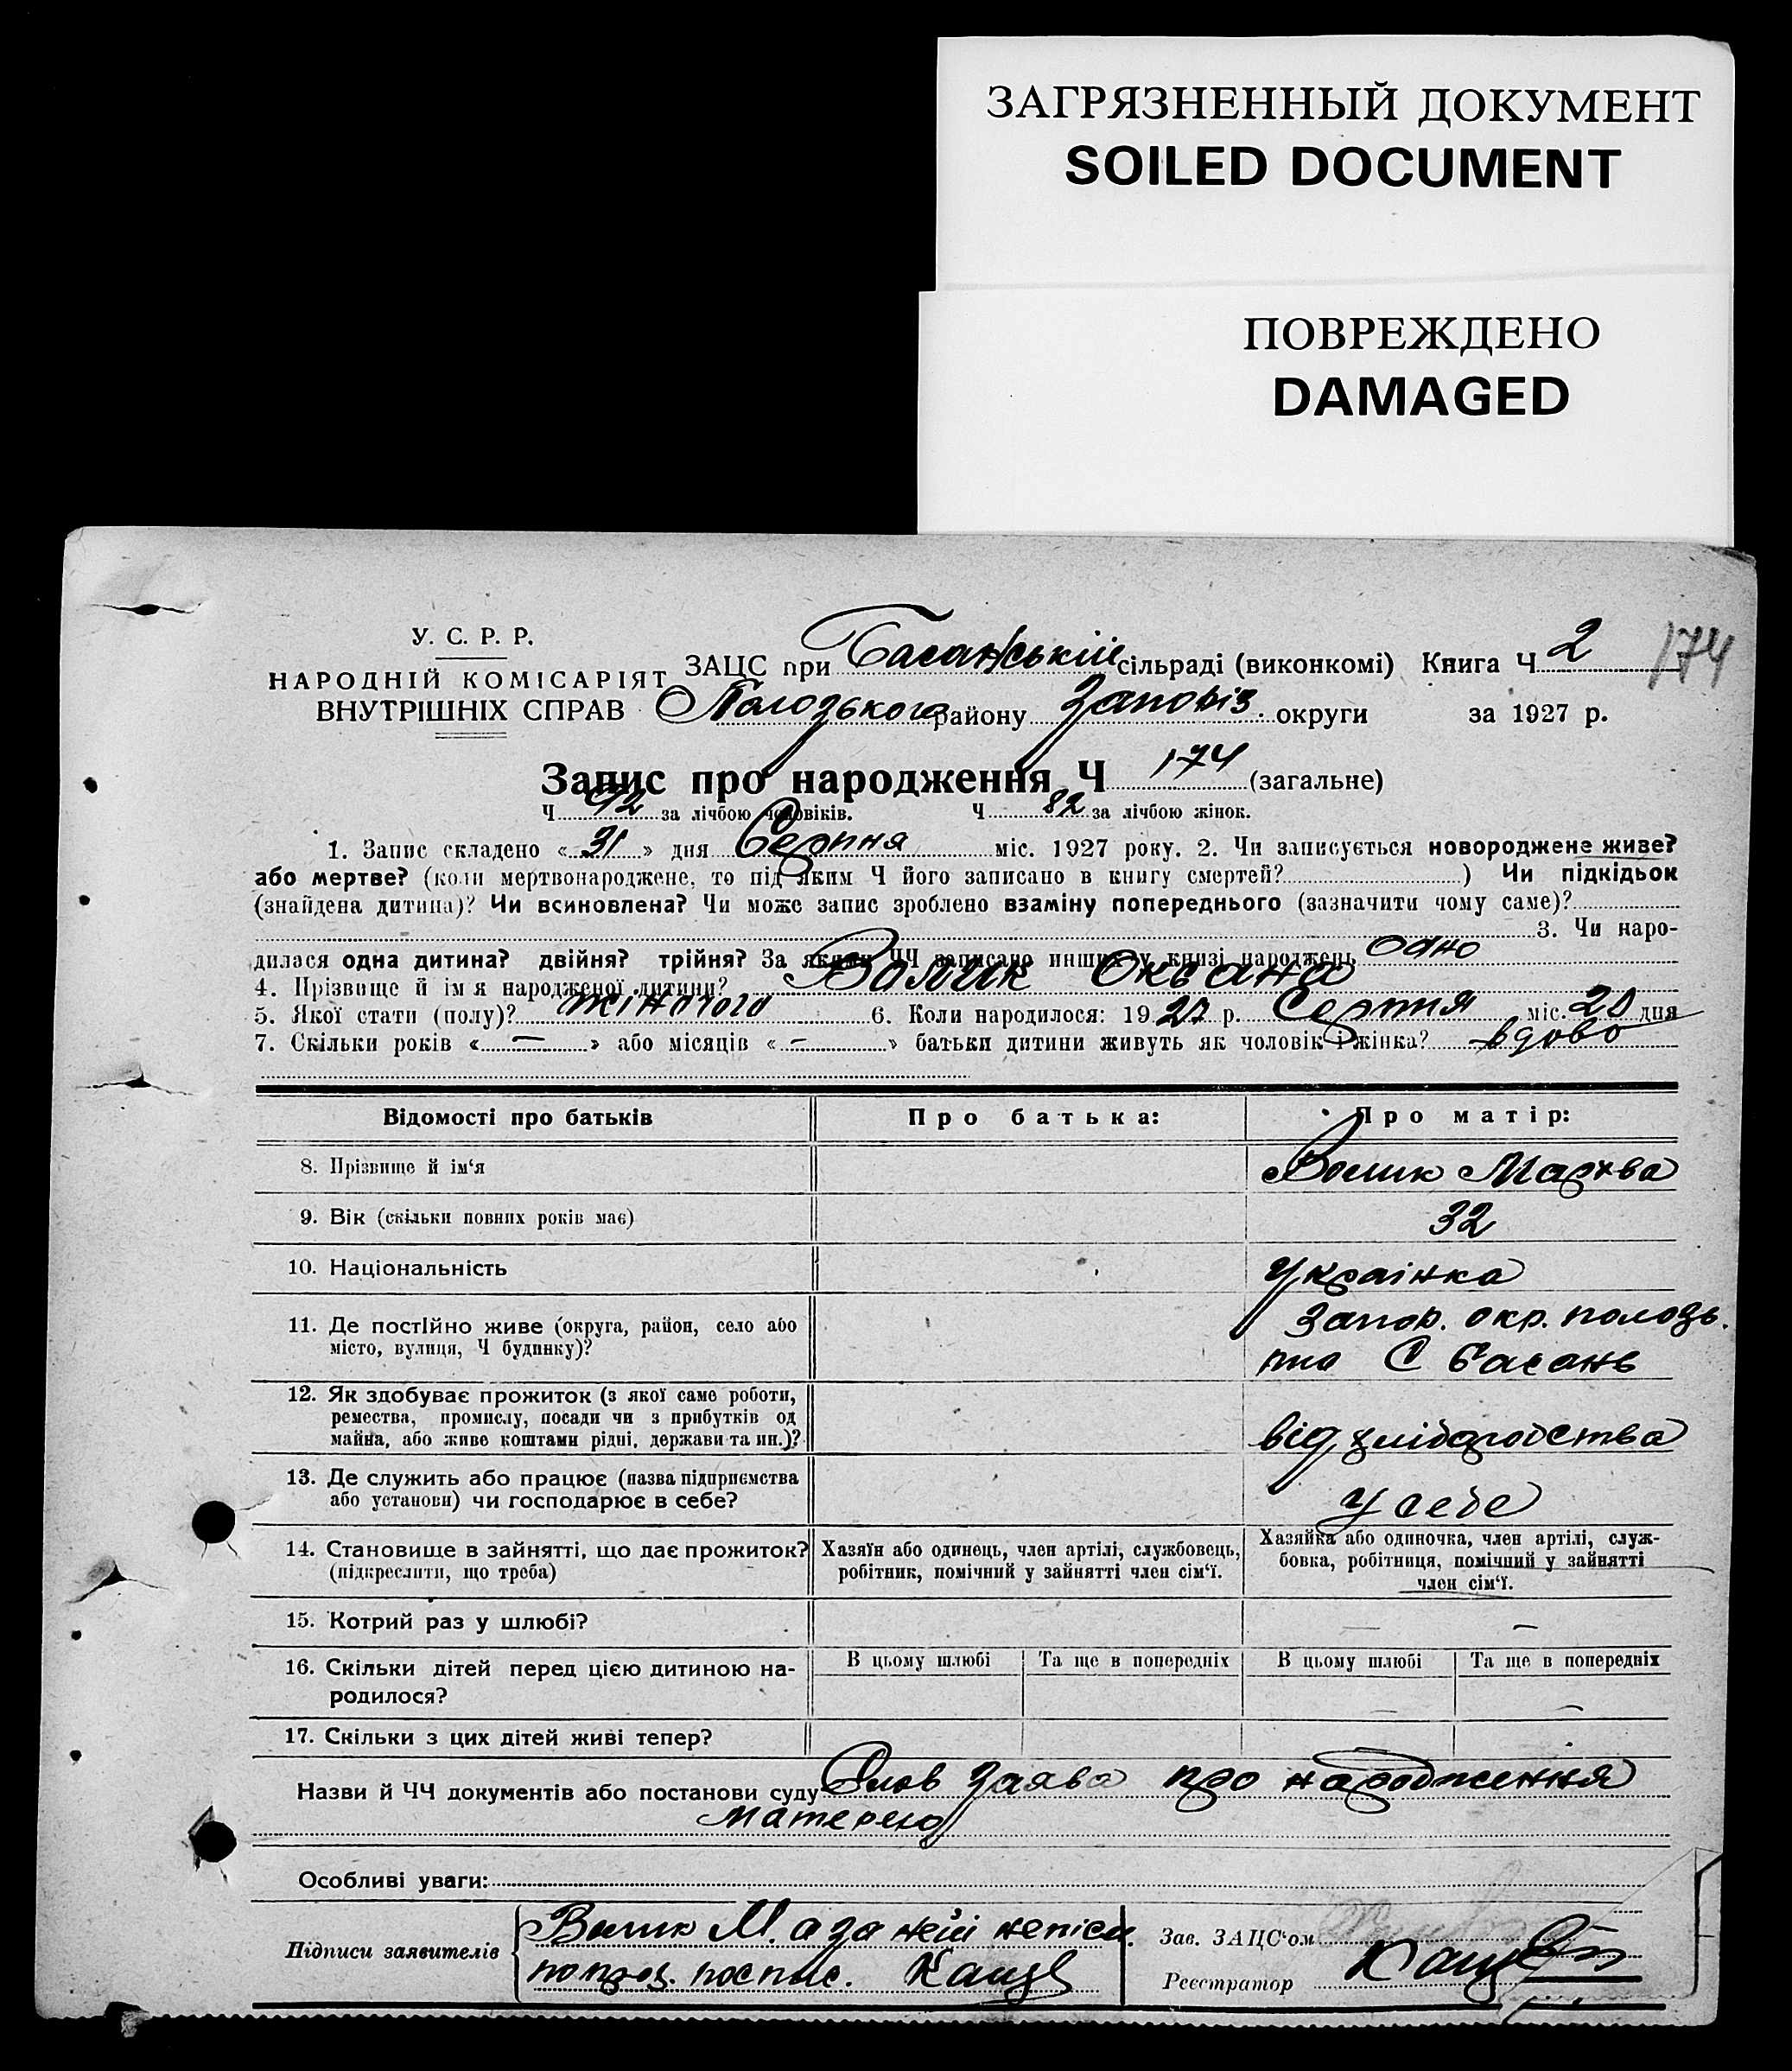 ЗАГРЯЗНЕННЫЙ ДОКУМЕНТ
SOILED DOCUMENT
ПОВРЕЖДЕНО
DAMAGED
174
У. С. Р. Р.
НАРОДНІЙ КОМІСАРІЯТ
ВНУТРІШНІХ СПРАВ
ЗАЦС при Басанській сільраді (виконкомі) Книга Ч 2
Полозького району Запоріз. округи за 1927 р.
Запис про народження Ч 174 (загальне)
Ч 92 за лічбою чоловіків. Ч 82 за лічбою жінок.
1. Запис складено «31» дня Серпня міс. 1927 року. 2. Чи записується новороджене живе?
або мертве? (коли мертвонароджене, то під яким Ч його записано в книгу смертей?) Чи підкідьок
(знайдена дитина)? Чи всиновлена? Чи може запис зроблено взаміну попереднього (зазначити чому саме)?
3. Чи наро-
дилася одна дитина? двійня? трійня? За якими ЧЧ записано инших у книзі народжень одно
4. Прізвище й ім я народженої дитини? Волик Оксана
5. Якої стати (полу)? жіночого 6. Коли народилося: 1927 р. Серпня міс. 20 дня
7. Скільки років «—» або місяців «—» батьки дитини живуть як чоловік і жінка? вдова
Відомості про батьків Про батька: Про матір:
8. Прізвище й ім‘я Волик Мархва
9. Вік (скільки повних років має) 32
10. Національність Українка
11. Де постійно живе (округа, район, село або Запор. окр. полозь.
місто, вулиця, Ч будинку)? С басань
12. Як здобуває прожиток (з якої саме роботи,
ремества, промислу, посади чи з прибутків од
майна, або живе коштами рідні, держави та ин.)? від хліборобства
13. Де служить або працює (назва підприємства
або установи) чи господарює в себе? у себе
14. Становище в зайнятті, що дає прожиток?
(підкреслити, що треба)
Хазяїн або одинець, член артілі, службовець,
робітник, помічний у зайнятті член сім‘ї.
Хазяйка або одиночка, член артілі, служ-
бовка, робітниця, помічний у зайнятті
член сім‘ї.
15. Котрий раз у шлюбі? — —
16. Скільки дітей перед цією дитиною на-
родилося?
В цьому шлюбі Та ще в попередніх В цьому шлюбі Та ще в попередніх
— —
17. Скільки з цих дітей живі тепер?
Назви й ЧЧ документів або постанови суду Слов заява про народження
матерею
Особливі уваги:
Підписи заявителів Волик М. а за неї непісм.
по прох. роспис. Кащ
Зав. ЗАЦС‘ом
Реєстратор